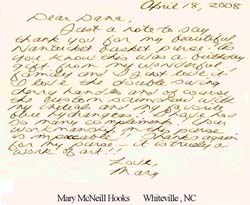 April 18, 2008
Dear Dana,
Just a note to say
thank you for my beautiful
Nantucket basket purse. As
you know this was a birthday
gift from my wonderful
family and I just love it!
I love the double swing
cherry handles and of course
the custom scrimshaw with
my initials and my favorite
blue hydrangeas. I have had
so many compliments! Your
workmanship on the purse
is impeccable! Thanks again
for my purse - it is truly a
work of art!!
Love,
Mary
Mary McNeill Hooks Whiteville , NC